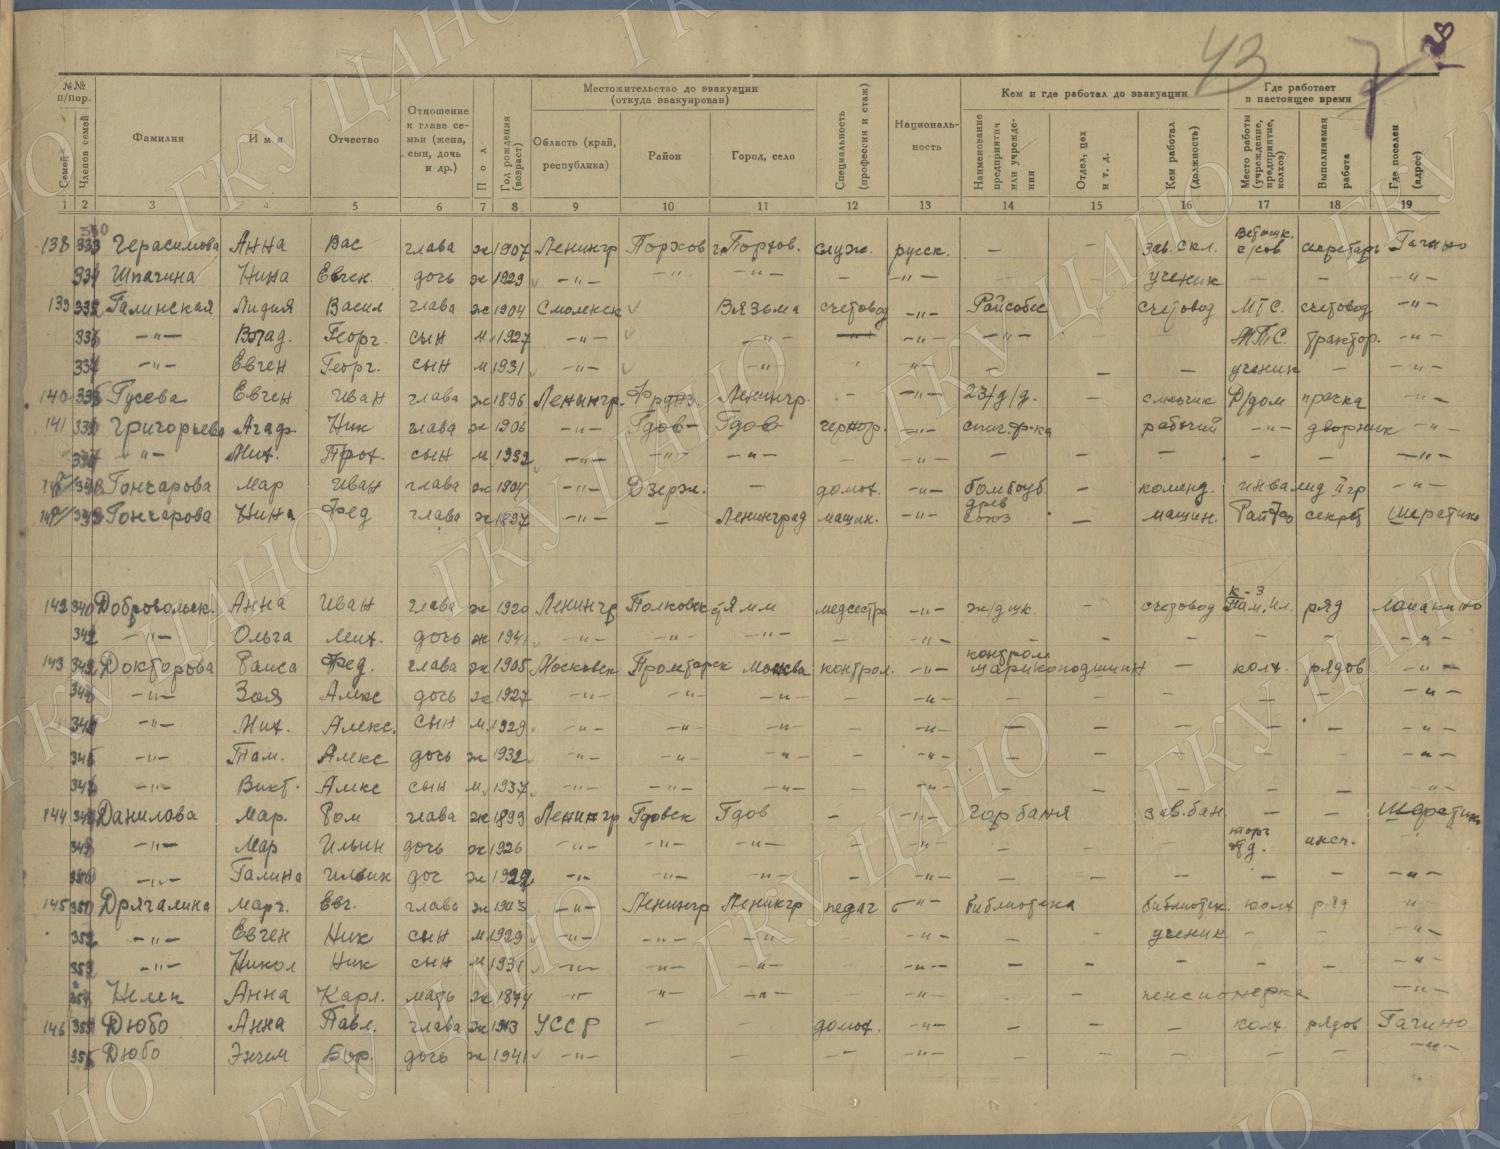 43
7
№№ п/пор.
Семей
Членов семей
Фамилия
Имя
Отчество
Отношение к главе семьи (жена, сын, дочь и др.)
Пол
Год рождения (возраст)
Местожительство до эвакуации (откуда эвакуирован)
Область (край, республика)
Район
Город, село
Специальность (профессия и стаж)
Националь-ность
Кем и где работал до эвакуации
Наименование предприятия или учрежде-ния
Отдел, цех и т. д.
Кем работал (должность)
Где работает в настоящее время
Место работы (учреждение, предприятие, колхоз)
Выполняемая работа
Где поселен (адрес)
1 2 3 4 5 6 7 8 9 10 11 12 13 14 15 16 17 18 19
138 333 Герасимова Анна Вас глава ж 1907 Ленингр Порхов г.Порхов. служ. русск. — — зав. скл. с/сов секретарь Гагино
334 Шпагина Нина Евген. дочь ж 1929 —"— —"— —"— — —"— ученик — — —"—
139 335 Галинская Лидия Васил глава ж 1904 Смоленск Вязьма счетовод —"— Райсобес счетовод МТС. счетовод —"—
—"— Влад. Георг. сын м 1927 —"— —"— —"— —"— МТС. трактор. —"—
—"— Евген Георг. сын м 1931 —"— —"— —"— — — — ученик — —"—
140 Гусева Евген Иван глава ж 1896 Ленингр. Фрунз. Ленингр. — —"— 23/д/д. — Д/дом прачка —"—
141 Григорьева Агаф Ник глава ж 1906 —"— Гдов Гдов чернор. —"— спич. ф-ка рабочий —"— дворник —"—
—"— Мих. Прох. сын м 1932 —"— —"— —"— — —"— — — — — — —"—
Гончарова Мар Иван глава ж 1904 —"— Дзерж. — домох. —"— бомбоуб. — коменд. инвалид II гр —"—
Гончарова Нина Фед глава ж 1897 —"— — Ленинград машин. —"— древ союз — машин. Райфо секрет Шератино
142 340 Добровольск. Анна Иван глава ж 1920 Ленингр Полновск Ямм медсестра —"— — счетовод к-з ряд
—"— Ольга Мих. дочь ж 1941 —"— —"— —"— — —"— — — — — — —"—
143 Докторова Раиса Фед. глава ж 1905 Московск Москва контрол. —"— контрол шарикоподшипн — колх. рядов —"—
—"— Зоя Алекс дочь ж 1927 —"— —"— —"— — —"— — — — — — —"—
—"— Мих. Алекс. сын м 1929 —"— —"— —"— — —"— — — — — — —"—
—"— Там. Алекс дочь ж 1932 —"— —"— —"— — —"— — — — — — —"—
—"— Викт. Алекс сын м. 1937 —"— —"— —"— — —"— — — — — — —"—
144 Данилова Мар. Ром глава ж 1899 Ленингр Гдовск Гдов — —"— гор баня зав. бан. — — Шератино
—"— Мар Ильин дочь ж 1926 —"— —"— —"— — —"— — — — торг инсп.
—"— Галина Ильин доч ж —"— —"— —"— — —"— — — — — — —"—
145 Дрягалина Марг. Евг. глава ж 1903 —"— Ленингр Ленингр педаг —"— библиотека библиотек. колх ряд —"—
352 —"— Евген Ник сын м 1929 —"— —"— —"— —"— — — ученик — — —"—
353 —"— Никол Ник сын м 1931 —"— —"— —"— —"— — — — — — —"—
Анна Карл. мать ж 1874 —"— —"— —"— —"— — — пенсионерка —"—
146 Дюбо Анна Павл. глава ж 1913 УССР — — домох. —"— — — — колх. рядов Гагино
Дюбо Бор. дочь ж 1941 —"— — — — —"— — — — — — —"—
ГКУ ЦАНО